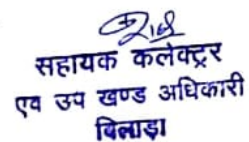 सहायक कलेक्टर
एव उप खण्ड अधिकारी
बिलाड़ा